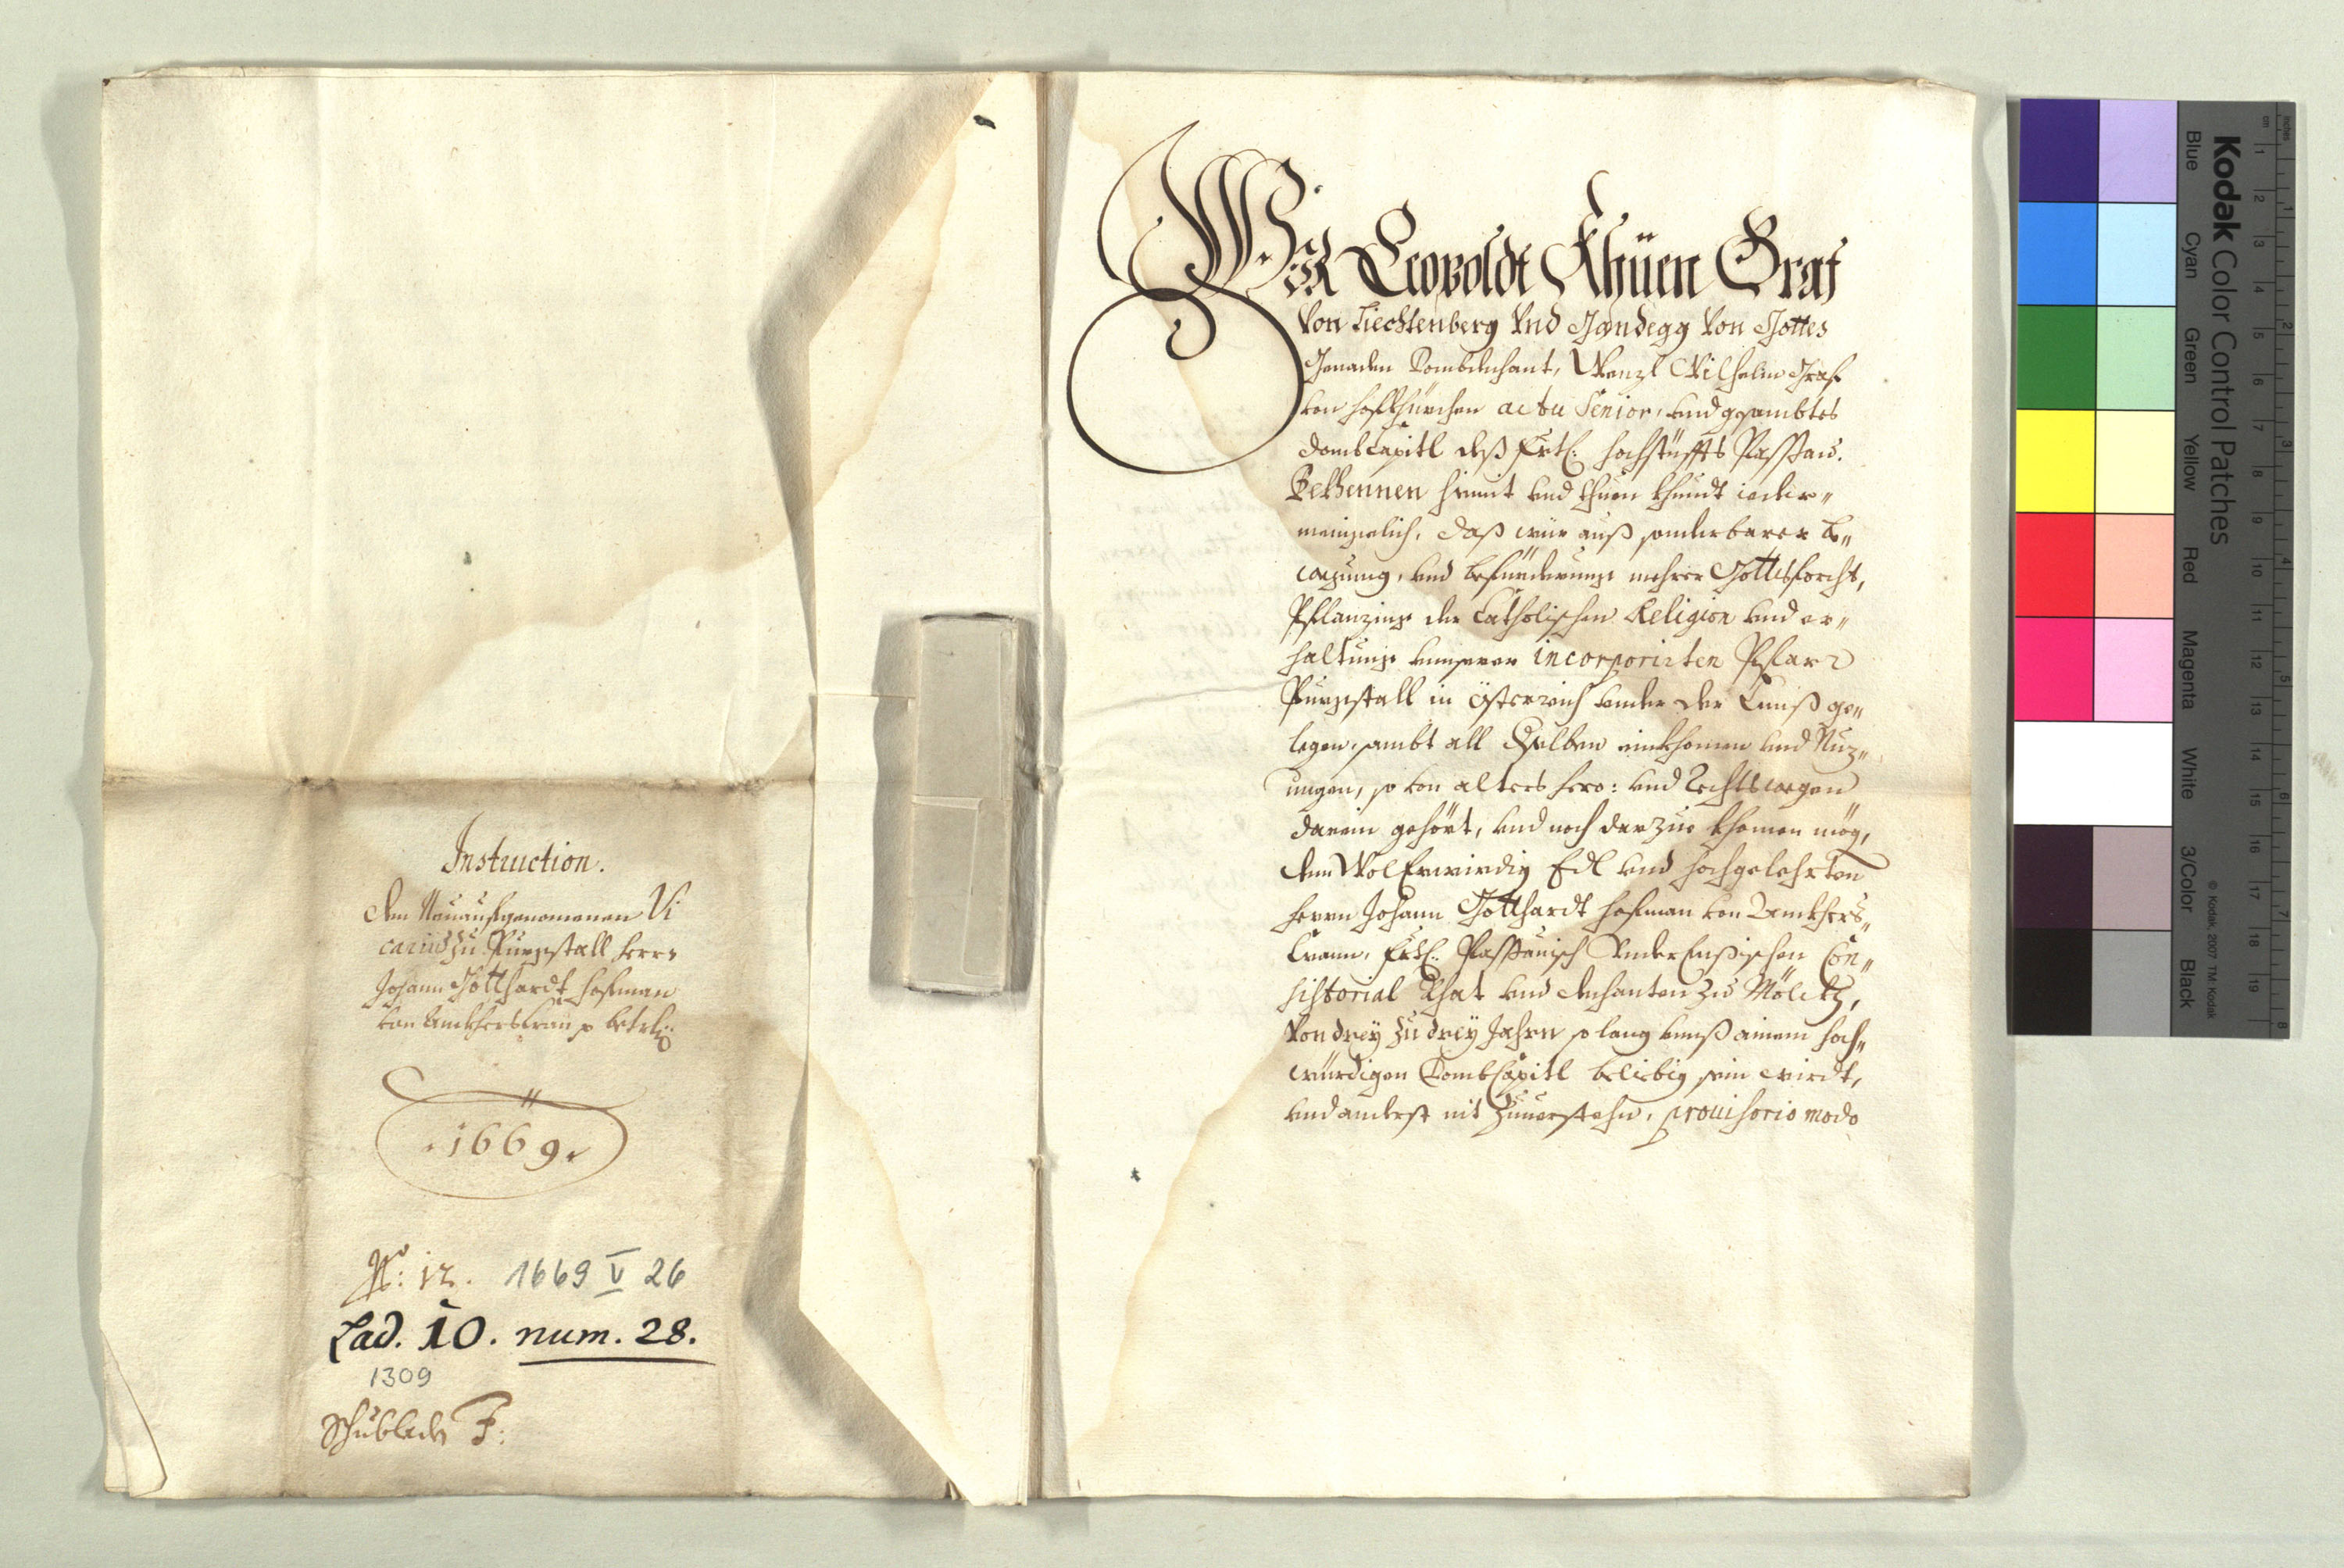 Instruction.
dem Neuaufgenomenen Vi
carius zu Purgstall herrn
Johann Gotthardt Hofman
von Anckherscron p betrl:
1669.
No: 12. 1669 V 26
Lad. 10. num. 28.
1309
Schubladen F:
Wir Leopoldt Khüen Graf
Von Liechtenberg Vnd Gandegg Von Gottes
Genaden Dombdechant, Wenzl Wilhelm Graf
von Hofkhürchen actu Senior, vnd gesambtes
Dombcapitl deß frtl: Hochstüffts Passau.
Bekhennen hiemit vnd thuen khundt ieder„
meinigelich, daß wür auß sonderbarer be„
wegung, vnd befürderunge mehrer Gottesforcht,
Pflanzung der Catholischen Religion vnd er„
haltung vnnserer incorporirten Pfarr
Purgstall in Össterreich vnder der Ennß ge„
legen, sambt all deselben einkhomen vnd Nuz„
ungen, so von alters hero: vnd Rechtswegen
darein gehört, vnd noch darzue khomen mög,
dem WolErwürdig Edl vnd hochgelehrten
herrn Johann Gotthardt Hofman von Anckhers„
Cronn, frtl: Passauisch VnderEnßischen Con„
sistorial Rhat vnd dechanten zu Mölckh,
Von drey zu drey Jahrn so lang vnnß ainem Hoch„
würdigen DombCapitl beliebig sein wirdt,
vnd anderst nit zuuerstehn, prouisorio modo